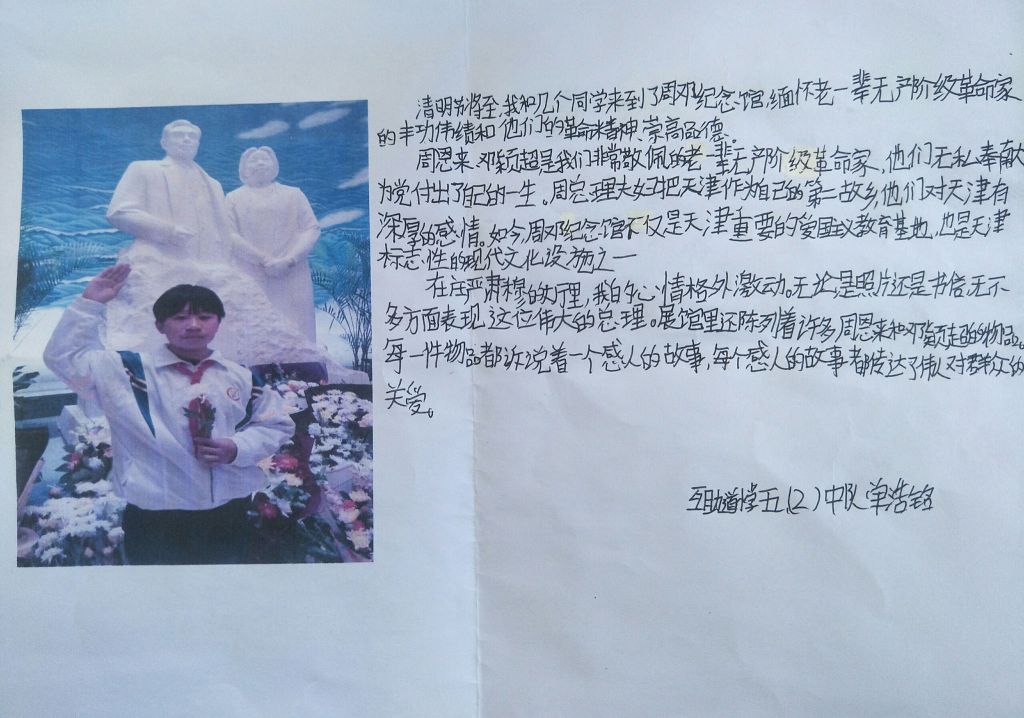 清明将至,我和几个同学来到了周邓纪念馆,缅怀老一辈无产阶级革命家
的丰功伟绩和他们的革命精神、崇高品德。
周恩来、邓颖超是我们非常敬佩的老一辈无产阶级革命家,他们无私奉献
为党付出了自己的一生。周总理夫妇把天津作为自己的第二故乡,他们对天津有
深厚的感情。如今,周邓纪念馆不仅是天津重要的爱国主义教育基地,也是天津
标志性的现代文化设施之一
在庄严肃穆的大厅里,我的心情格外激动。无论是照片还是书信,无不
多方面表现这位伟大的总理。展馆里还陈列着许多周恩来和邓颖超的物品。
每一件物品都诉说着一个感人的故事,每个感人的故事都传达了伟人对群众的
关爱。
互助道小学五(2)中队单浩铭